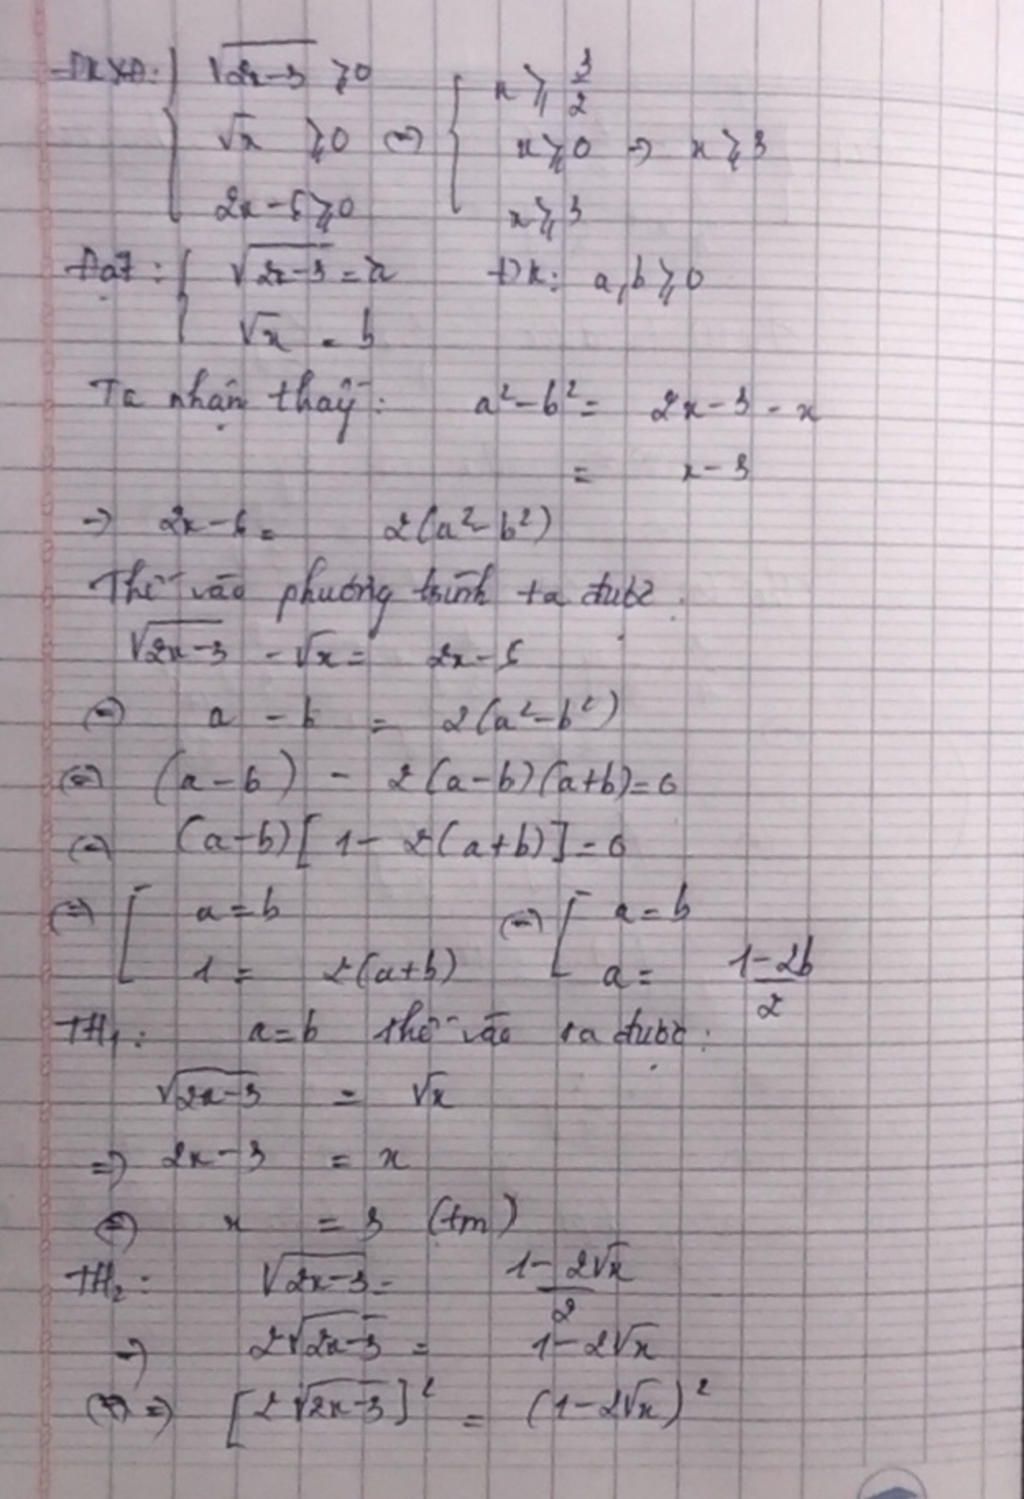 ĐKXĐ: { √(2x-3) ≥ 0 { x ≥ 3/2
√x ≥ 0 ⇔ x ≥ 0 → x ≥ 3
2x-6 ≥ 0 x ≥ 3
Đặt: { √(2x-3) = a ĐK: a,b ≥ 0
√x = b
Ta nhận thấy: a² - b² = 2x - 3 - x
= x - 3
→ 2x - 6 = 2(a² - b²)
Thế vào phương trình ta được.
√(2x-3) - √x = 2x - 6
⇔ a - b = 2(a² - b²)
⇔ (a - b) - 2(a-b)(a+b) = 0
⇔ (a-b)[1 - 2(a+b)] = 0
⇔ [ a = b ⇔ [ a = b
1 = 2(a+b) a = (1-2b)/2
TH₁: a = b thế vào ta được:
√(2x-3) = √x
⇒ 2x - 3 = x
⇔ x = 3 (tm)
TH₂: √(2x-3) = (1-2√x)/2
→ 2√(2x-3) = 1 - 2√x
⇒ [2√(2x-3)]² = (1-2√x)²